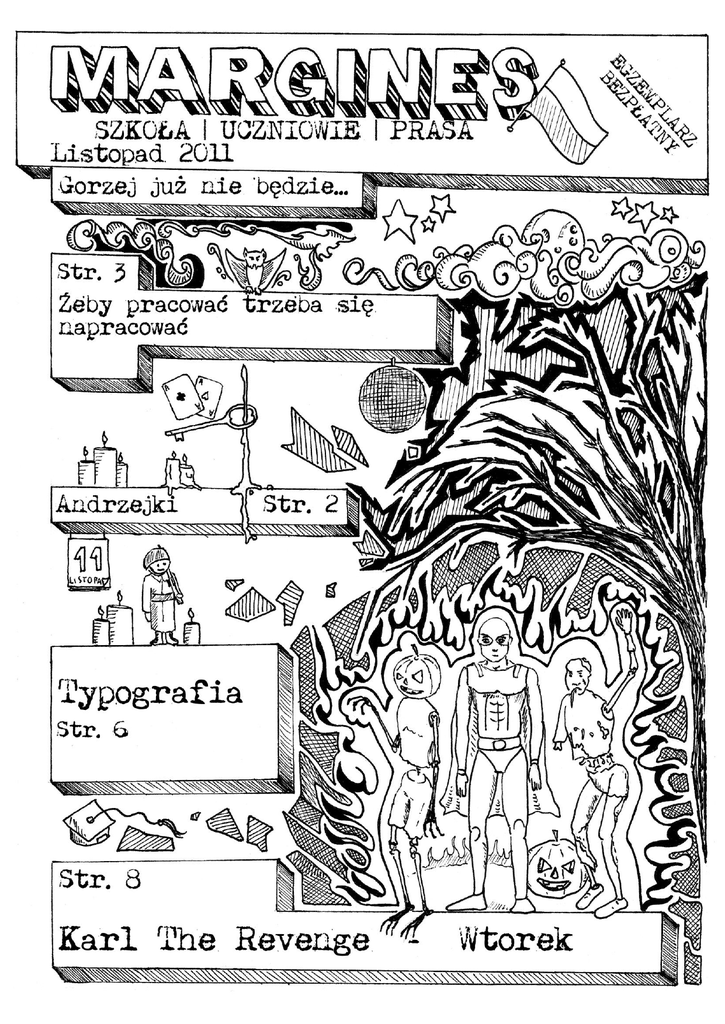 MARGINES
SZKOŁA | UCZNIOWIE | PRASA
Listopad 2011
EGZEMPLARZ
BEZPŁATNY
Gorzej już nie będzie...
Str. 3
Żeby pracować trzeba się
napracować
Andrzejki Str. 2
11
LISTOPAD
Typografia
Str. 6
Str. 8
Karl The Revenge - Wtorek